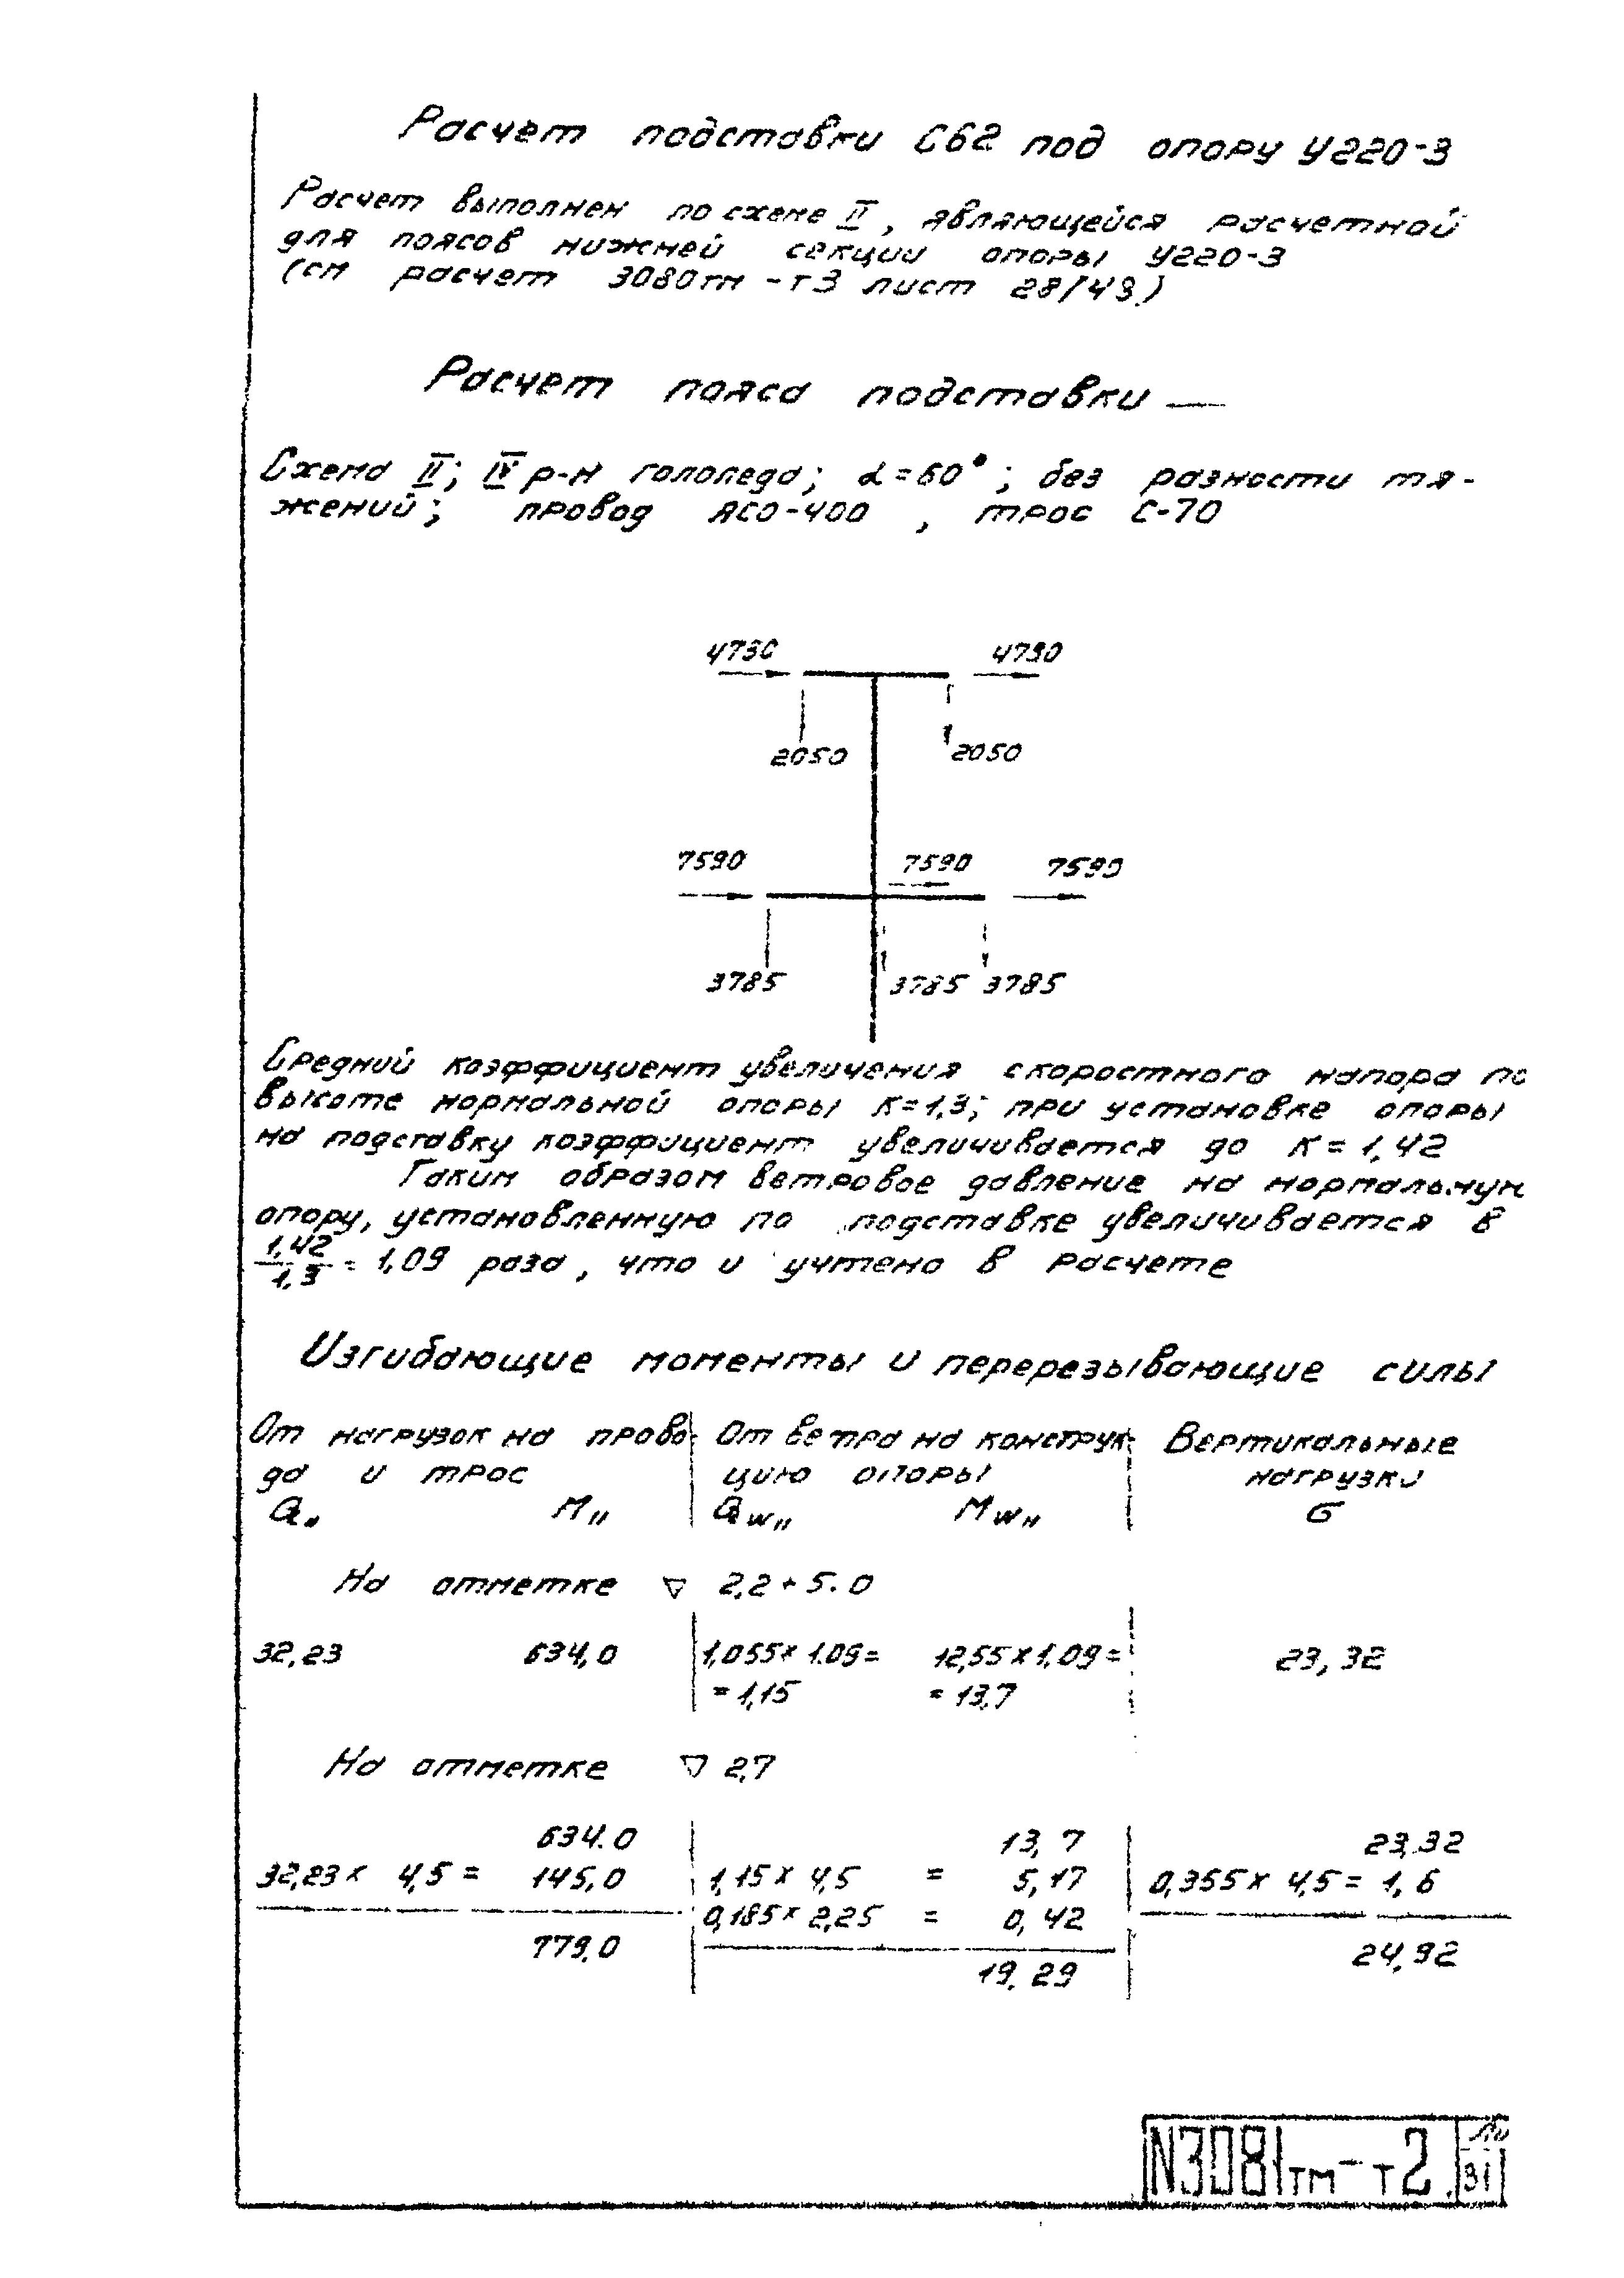 Расчет подставки С62 под опору У220-3
Расчет выполнен по схеме II, являющейся расчетной
для поясов нижней секции опоры У220-3
(см расчет 3080тм-т3 лист 28/49)
Расчет пояса подставки
Схема II; IV р-н гололеда; α=60°; без разности тя-
жений; провод АСО-400, трос С-70
4790 4790
2050 2050
7590 7590 7590
3785 3785 3785
Средний коэффициент увеличения скоростного напора по
высоте нормальной опоры К=1,3; при установке опоры
на подставку коэффициент увеличивается до К=1,42
Таким образом ветровое давление на нормальную
опору, установленную по подставке увеличивается в
1,42/1,3 = 1,09 раза, что и учтено в расчете
Изгибающие моменты и перерезывающие силы
От нагрузок на прово- От ветра на конструк- Вертикальные
да и трос цию опоры нагрузки
Qн Mн Qwн Mwн G
На отметке ▽ 2,2+5.0
32,23 634,0 1,055×1.09= 12,55×1,09= 23,32
=1,15 =13,7
На отметке ▽ 2,7
634.0 13,7 23,32
32,23× 4,5= 145,0 1,15× 4,5 = 5,17 0,355× 4,5= 1,6
0,185×2,25 = 0,42
779,0 19,29 24,92
N3081тм-т2 31